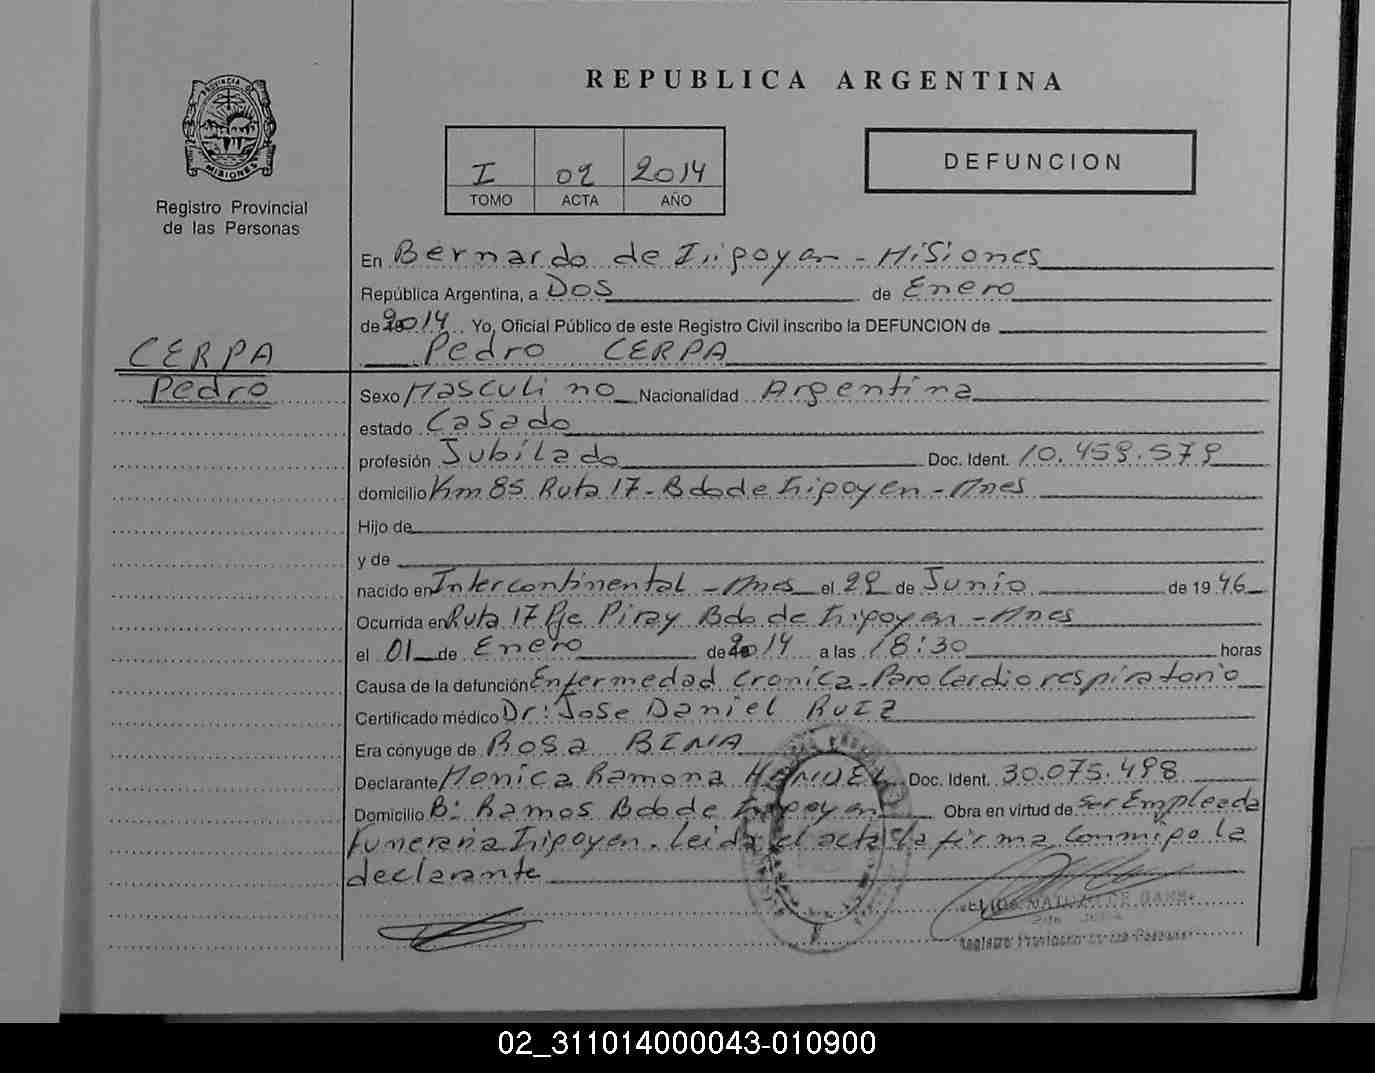 PROVINCIA DE
MISIONES
Registro Provincial
de las Personas
REPUBLICA ARGENTINA
I 02 2014
TOMO ACTA AÑO
DEFUNCION
CERPA
Pedro
En Bernardo de Irigoyen - Misiones
República Argentina, a Dos de Enero
de 2014 Yo, Oficial Público de este Registro Civil inscribo la DEFUNCION de
Pedro CERPA
Sexo Masculino Nacionalidad Argentina
estado Casado
profesión Jubilado Doc. Ident. 10.459.579
domicilio Km 85 Ruta 17 - Bdo de Irigoyen - Mnes
Hijo de
y de
nacido en Intercontinental - Mnes el 29 de Junio de 1946
Ocurrida en Ruta 17 Pje Piray Bdo de Irigoyen - Mnes
el 01 de Enero de 2014 a las 18:30 horas
Causa de la defunción Enfermedad Cronica - Paro Cardiorespiratorio
Certificado médico Dr: Jose Daniel RUIZ
Era cónyuge de Rosa BINA
Declarante Monica Ramona MANUEL Doc. Ident. 30.075.498
Domicilio B: Ramos Bdo de Irigoyen Obra en virtud de Ser Empleada
Funeraria Irigoyen. Leida el acta la firma conmigo la
declarante
Registro Provincial de las Personas
02_311014000043-010900